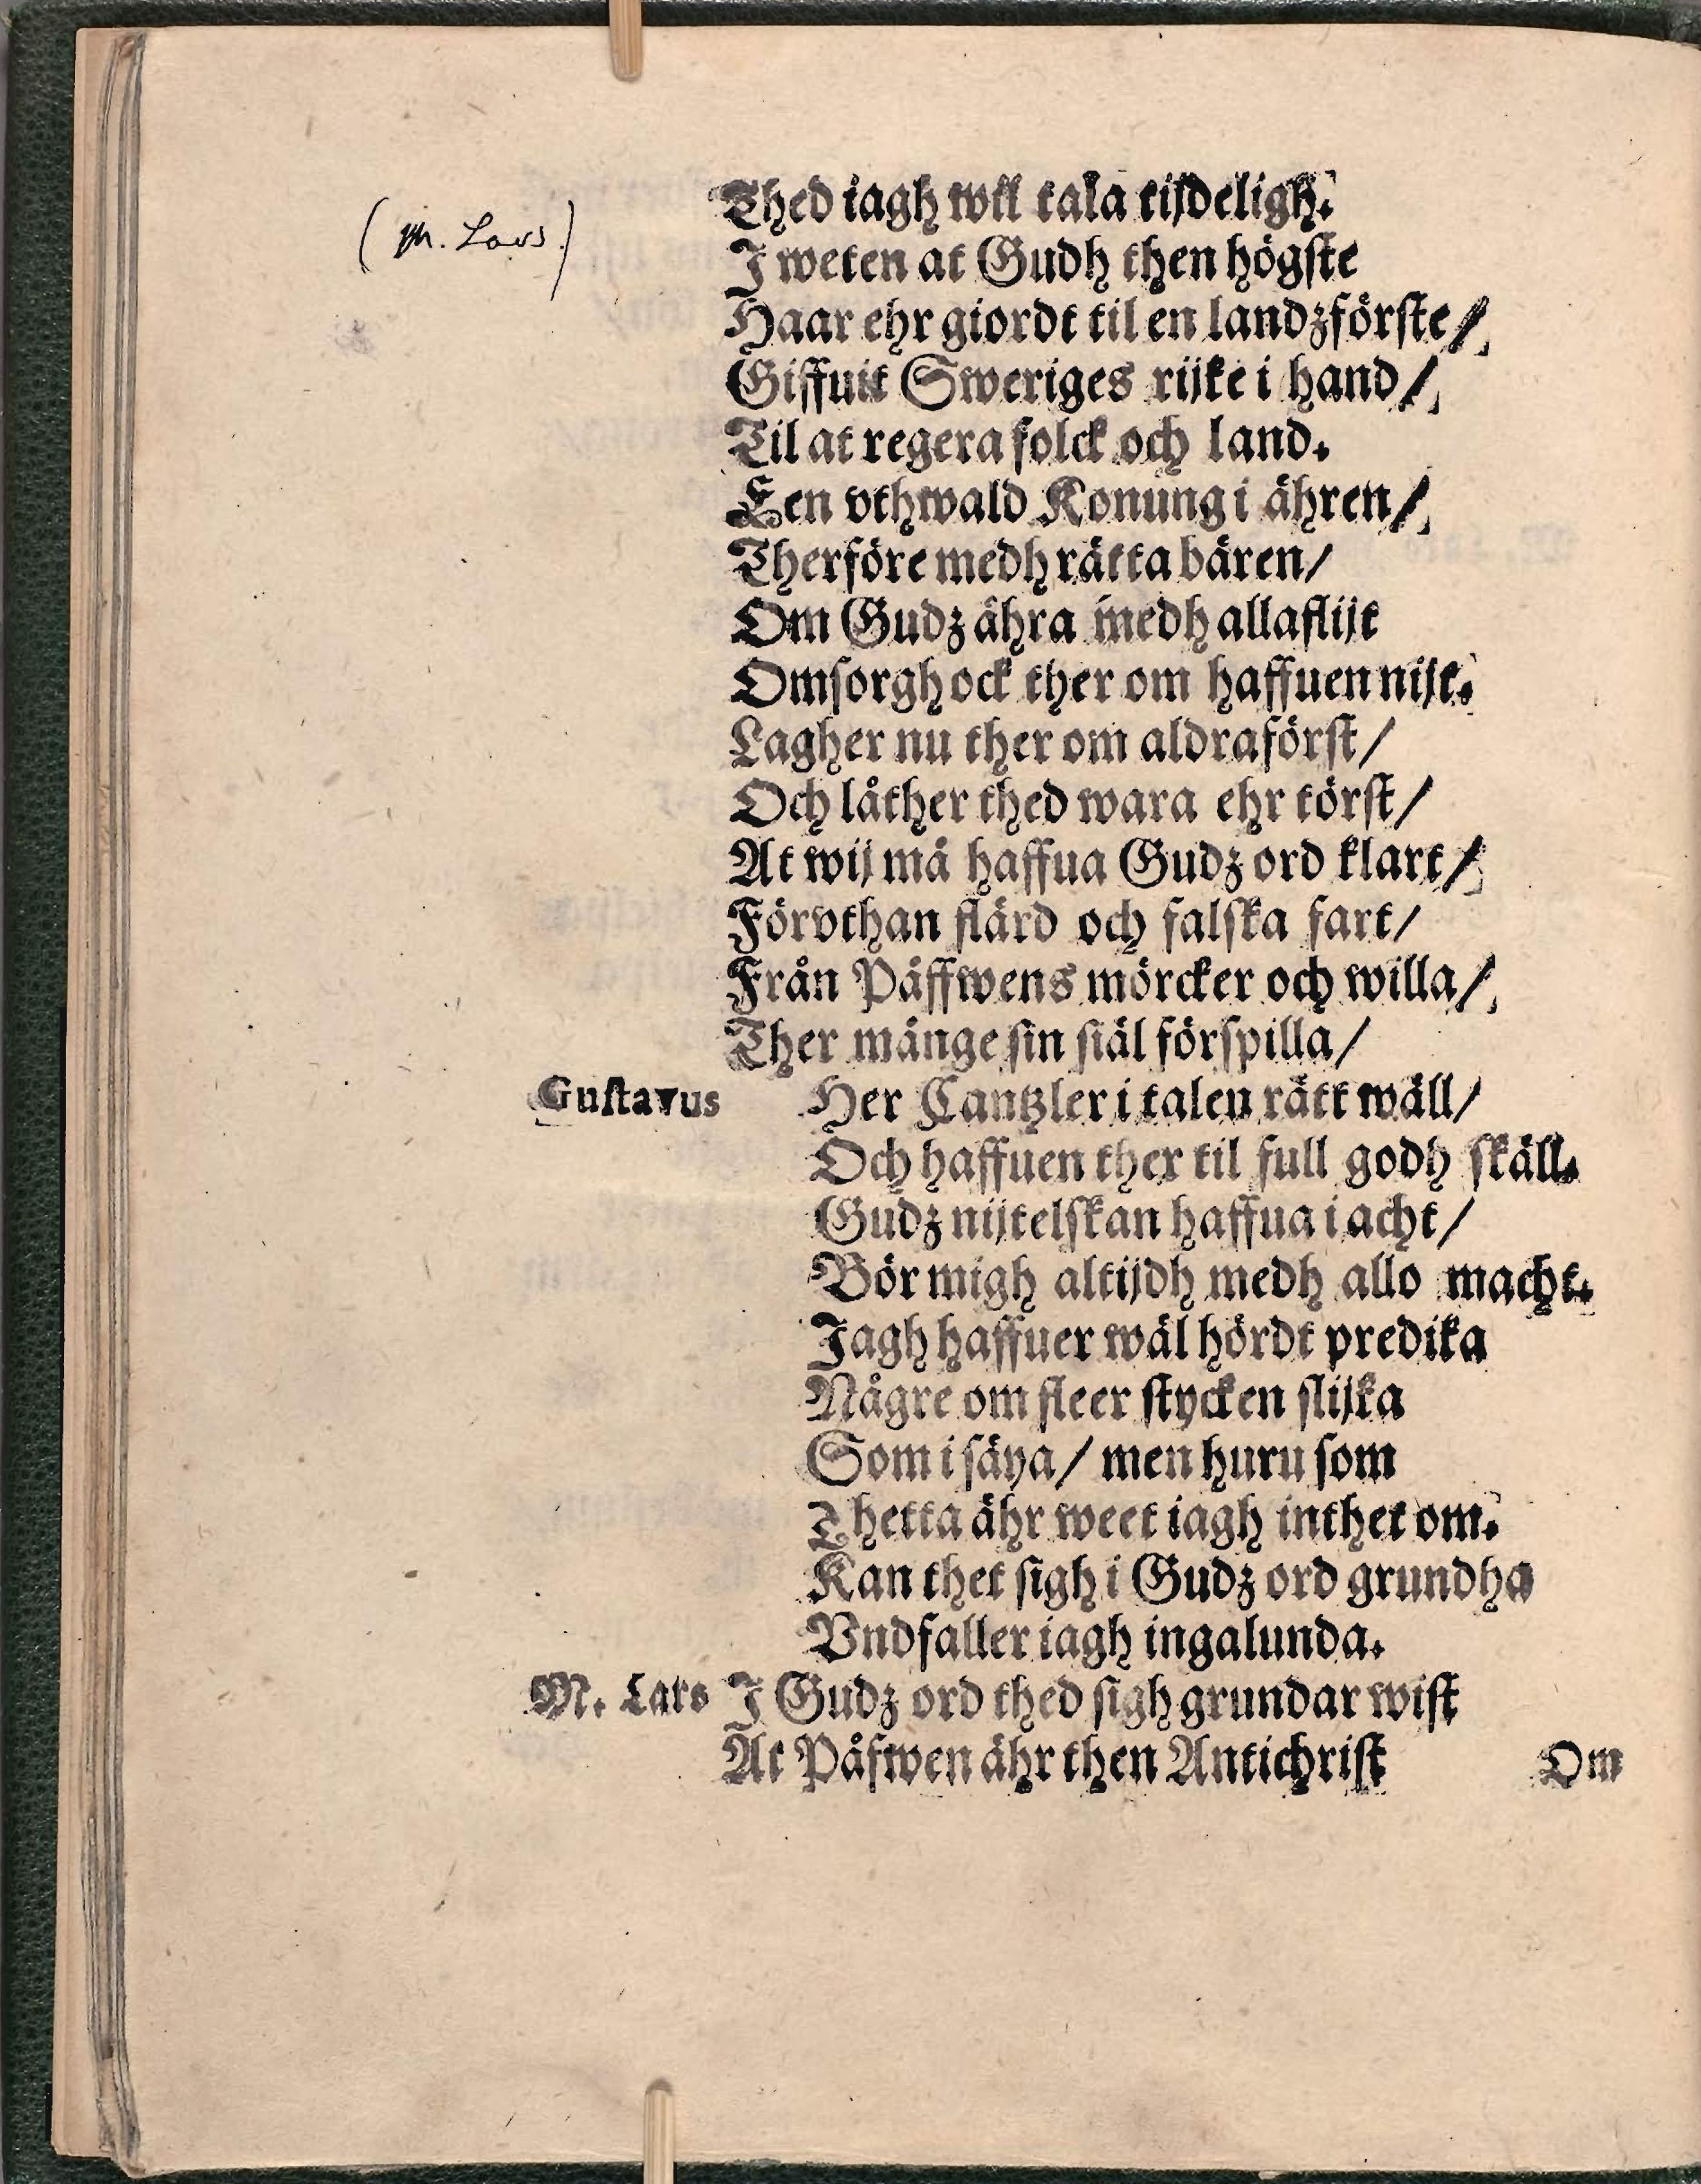 Thed iagh will tala tijdeligh.
(M. Lars.)
J weten at Gudh then högste
Haar ehr giordt til en landzförste/
Giffuit Sweriges rijke i hand/
Til at regera folck och land.
Een vthwald Konung i ähren/
Therföre medh rätta bären/
Om Gudz ähra medh alla flijt
Omsorgh ock ther om haffuen nijt.
Lagher nu ther om aldraförst/
Och låther thed wara ehr törst/
At wij må haffua Gudz ord klart/
Förvthan flärd och falska fart/
Från Påffwens mörcker och willa/
Ther månge sin siäl förspilla/
Gustavus Her Cantzler i talen rätt wäll/
Och haffuen ther til full godh skäll.
Gudz nijt elskan haffua i acht/
Bör migh altijdh medh allo macht.
Jagh haffuer wäl hördt predika
Någre om fleer stycken slijka
Som i säya/ men huru som
Thetta ähr weet iagh inthet om.
Kan thet sigh i Gudz ord grundha
Vndfaller iagh ingalunda.
M. Lars J Gudz ord thed sigh grundar wist
At Påfwen ähr then Antichrist
Om